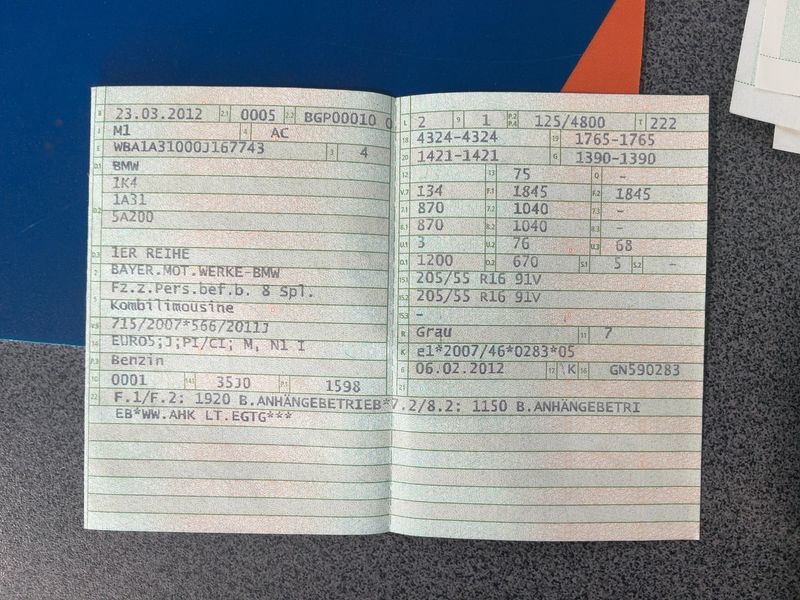 B 23.03.2012 2.1 0005 2.2 BGP00010 0
J M1 4 AC
E WBA1A31000J167743 3 4
D.1 BMW
1K4
D.2 1A31
5A200
D.3 1ER REIHE
2 BAYER.MOT.WERKE-BMW
5 Fz.z.Pers.bef.b. 8 Spl.
Kombilimousine
V.9 715/2007*566/2011J
14 EURO5;J;PI/CI; M, N1 I
P.3 Benzin
10 0001 14.1 35J0 P.1 1598
22 F.1/F.2: 1920 B.ANHÄNGEBETRIEB*7.2/8.2: 1150 B.ANHÄNGEBETRI
EB*WW.AHK LT.EGTG***
L 2 9 1 P.2 P.4 125/4800 T 222
18 4324-4324 19 1765-1765
20 1421-1421 G 1390-1390
12 13 75 Q -
V.7 134 F.1 1845 F.2 1845
7.1 870 7.2 1040 7.3 -
8.1 870 8.2 1040 8.3 -
U.1 3 U.2 76 U.3 68
O.1 1200 O.2 670 S.1 5 S.2 -
15.1 205/55 R16 91V
15.2 205/55 R16 91V
15.3 -
R Grau 11 7
K e1*2007/46*0283*05
6 06.02.2012 17 K 16 GN590283
21